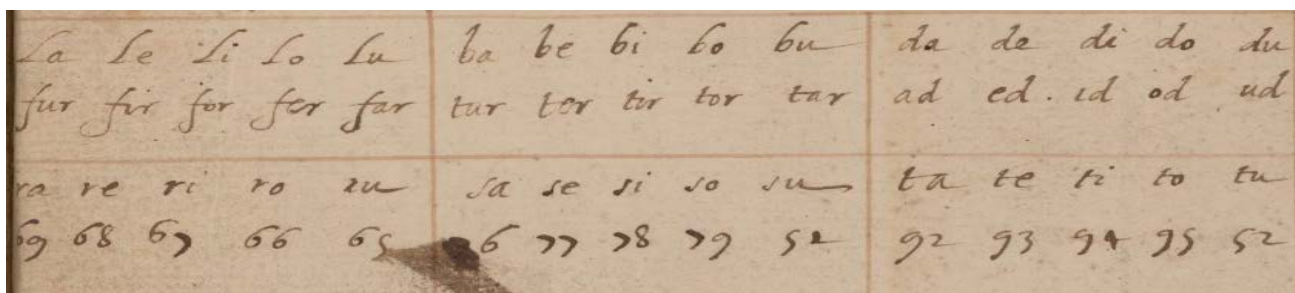 La Le Li Lo Lu ba be bi bo bu da de di do du
fur fir for fer far tur ter tir tor tar ad ed . id od ud
ra re ri ro ru sa se si so su ta te ti to tu
69 68 67 66 65 6 77 78 79 52 92 93 94 95 52